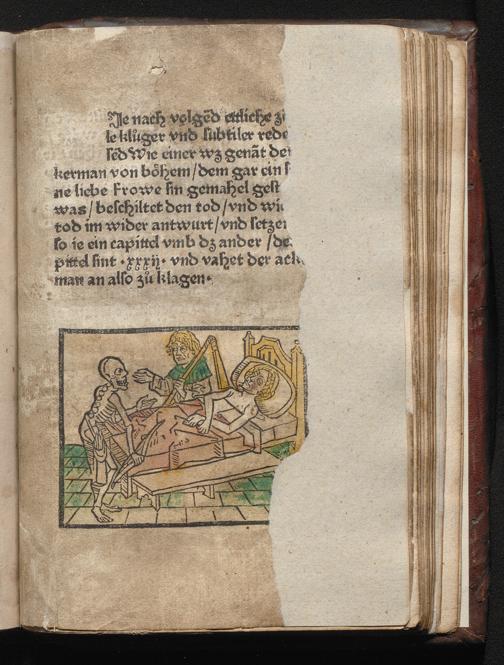 Ie nach volgēd ettliche zů
le klůger vnd subtiler rede
sēd Wie einer wz genāt der
kerman von bôhem / dem gar ein s
ne liebe Frowe sin gemahel gest
was / beschiltet den tod / vnd wie
tod im wider antwurt / vnd setzet
so ie ein capittel vmb dz ander / de
pittel sint · xxxij · vnd vahet der ack
man an also zů klagen ·